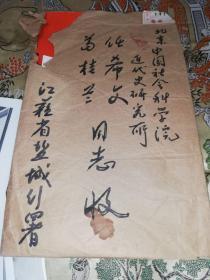 北京中国社会科学院
近代史研究所
任希文
葛桂兰 同志收
江苏省盐城行署